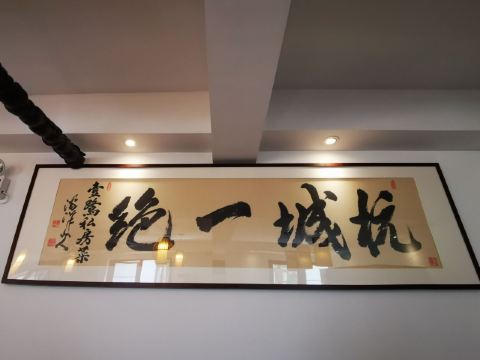 杭城一绝
壹鹭私房菜